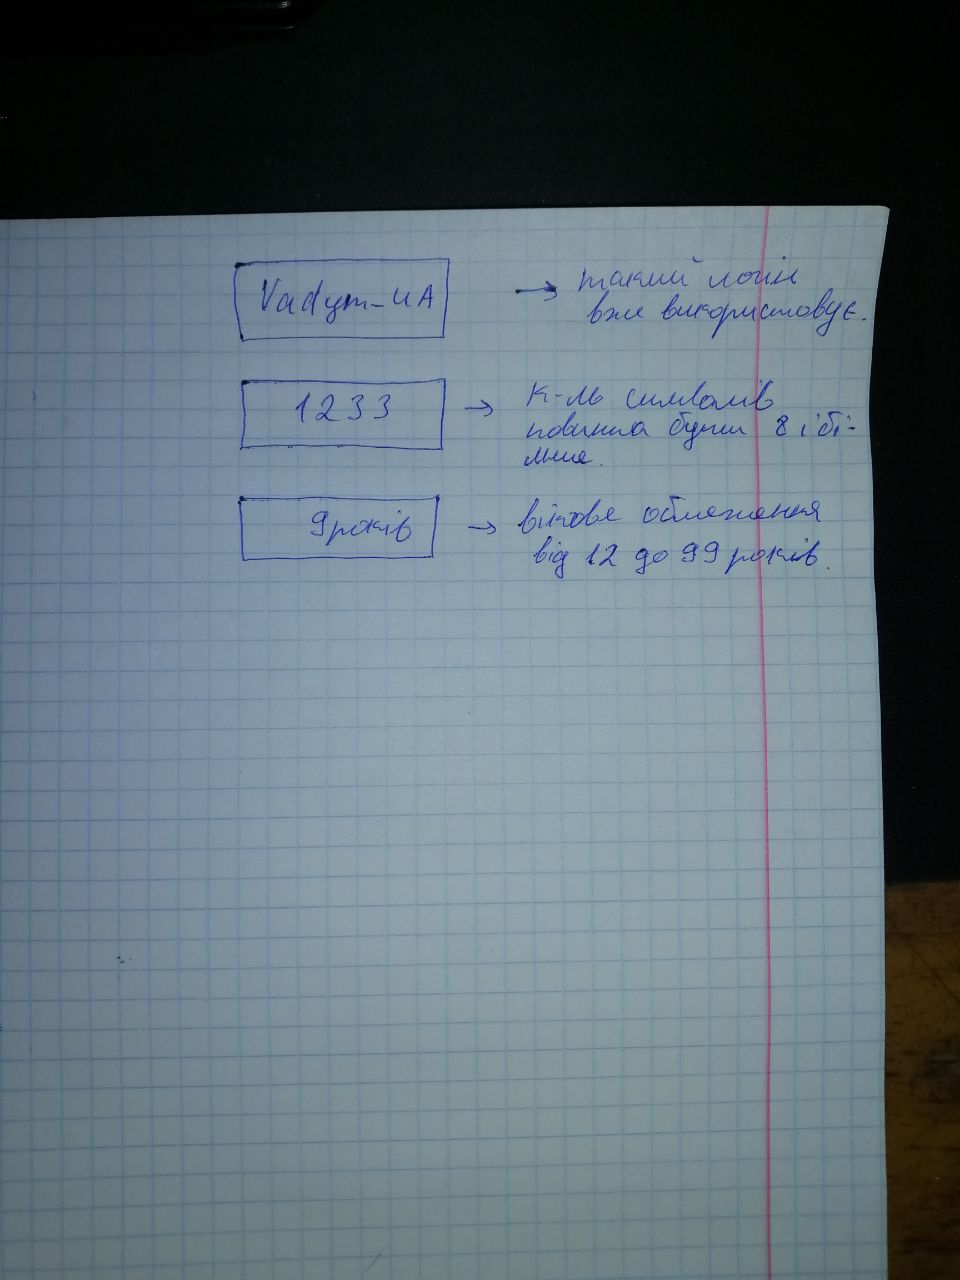 Vadym-UA → такий логін
вже використовує.
1233 → к-ль символів
повинна бути 8 і бі-
льше.
9 років → вікове обмеження
від 12 до 99 років.